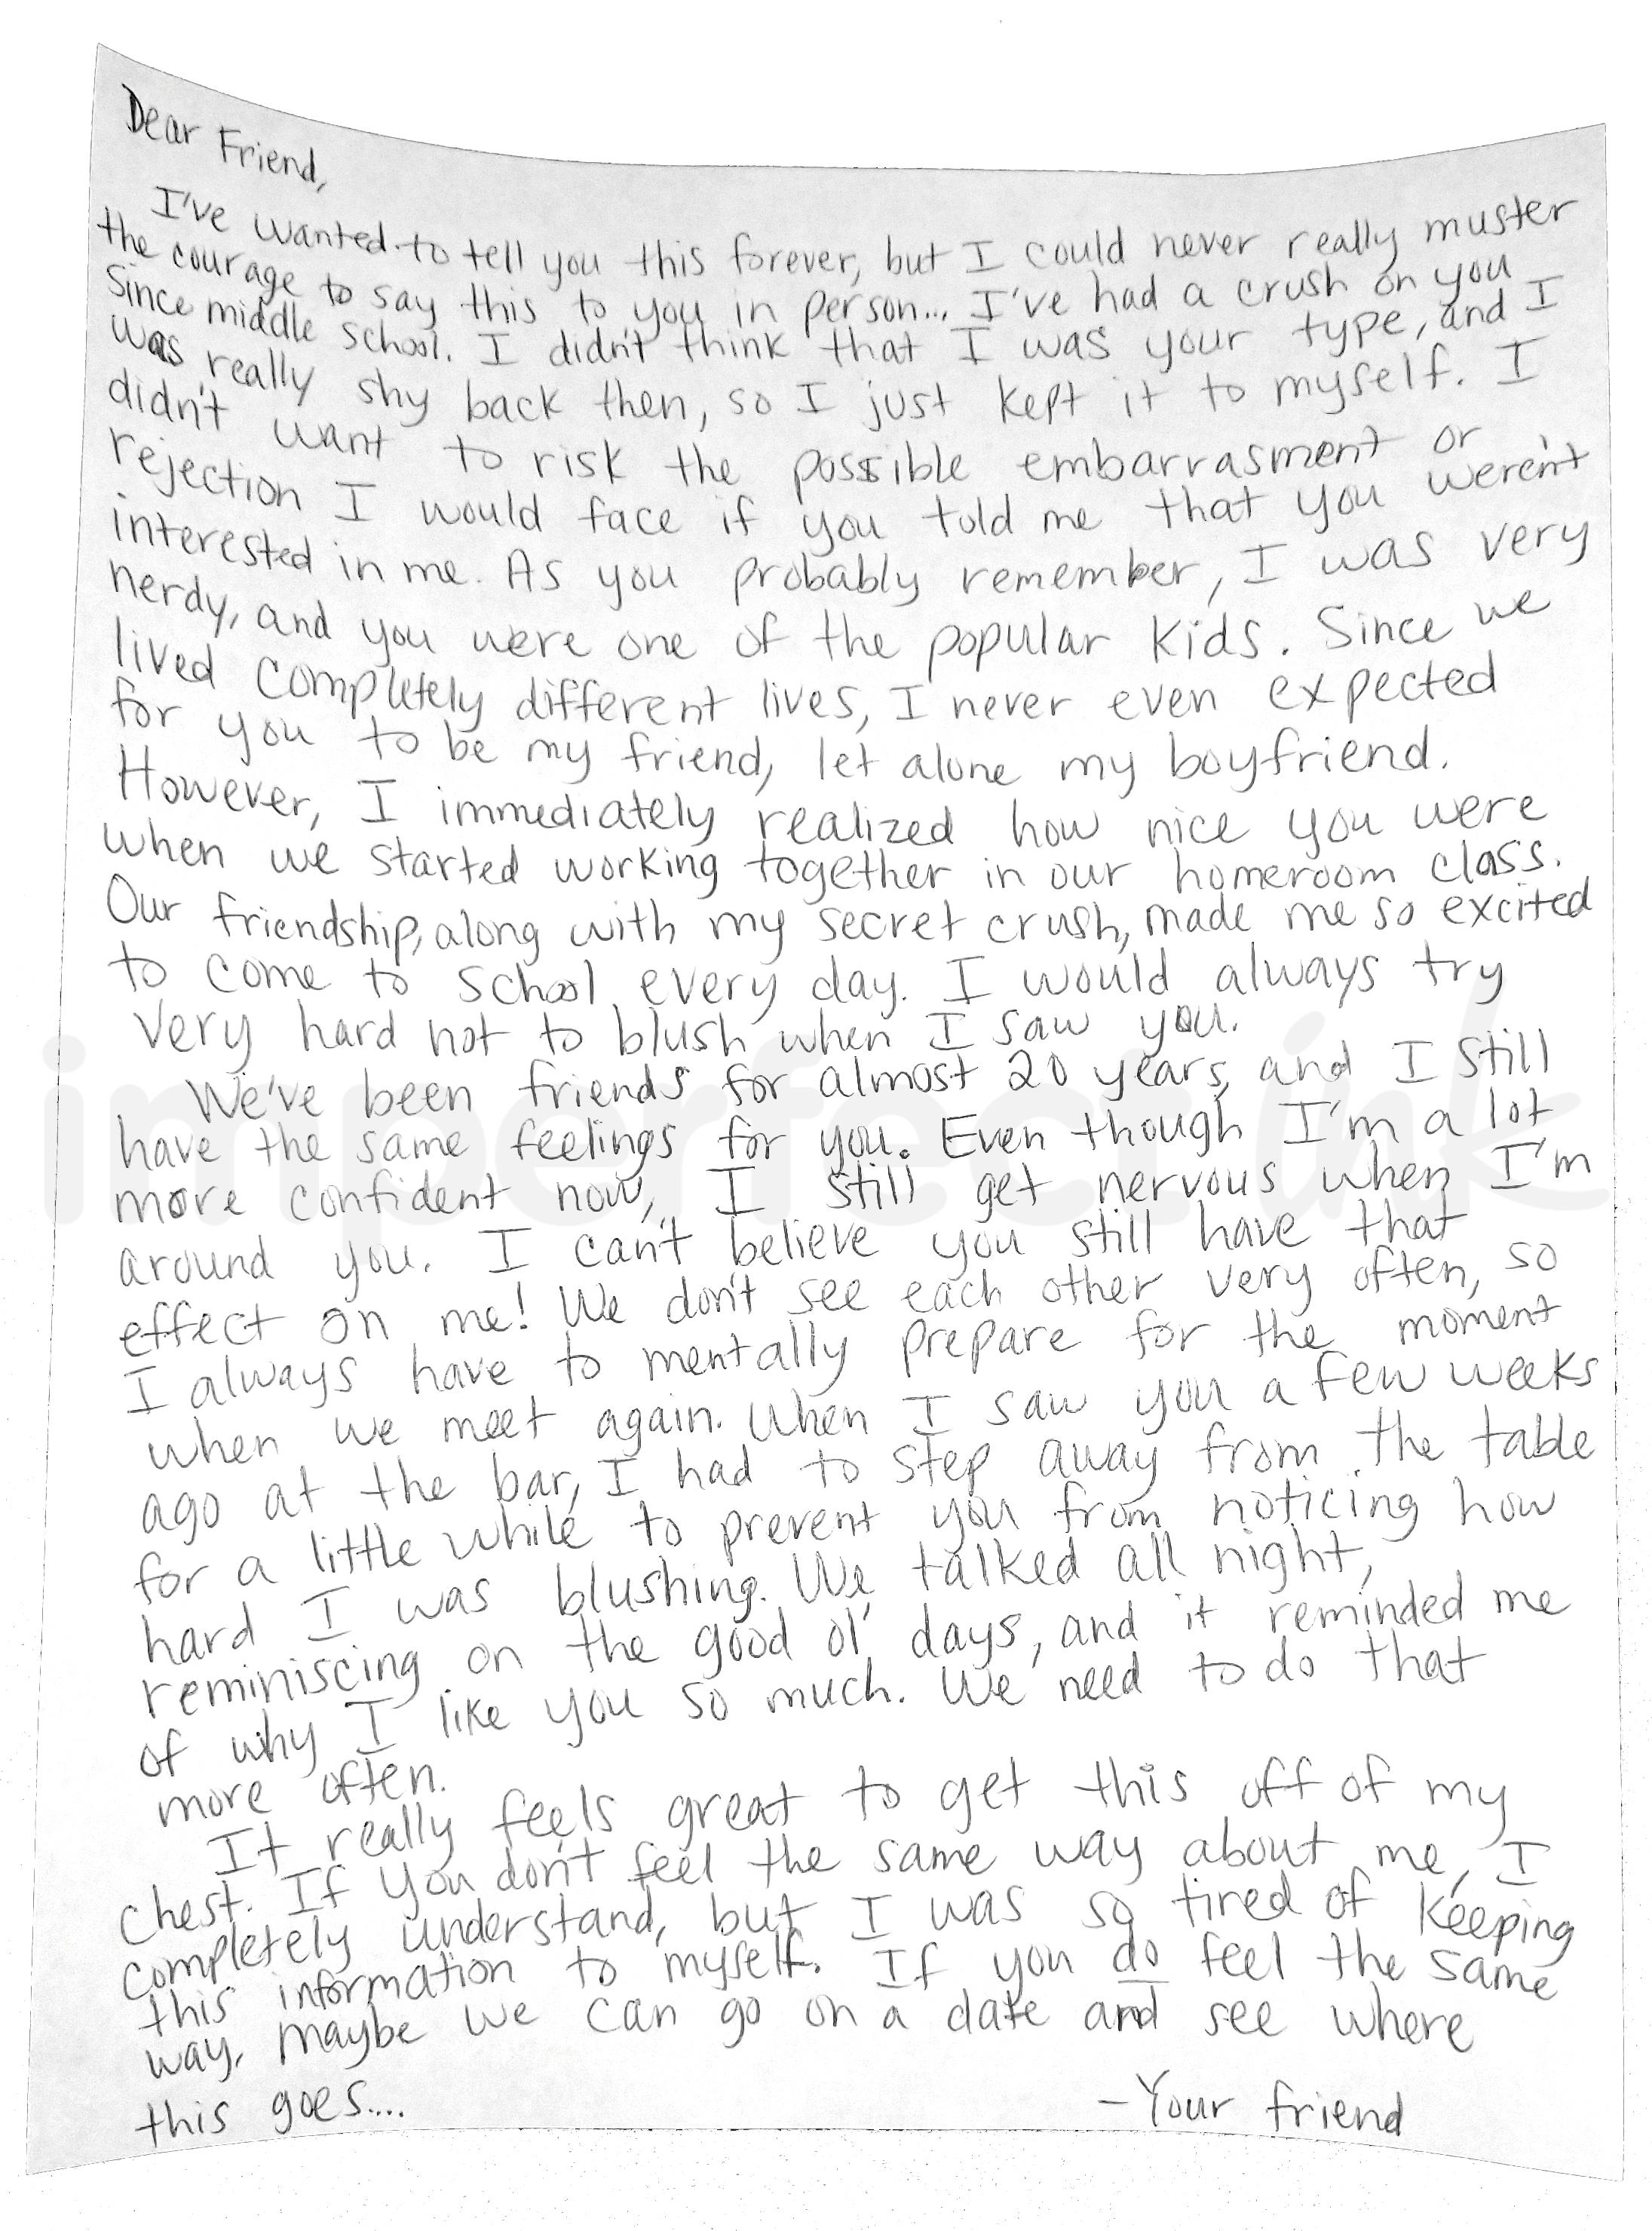 Dear Friend,
I've wanted to tell you this forever, but I could never really muster
the courage to say this to you in person... I've had a crush on you
since middle school. I didn't think that I was your type, and I
was really shy back then, so I just kept it to myself. I
didn't want to risk the possible embarrasment or
rejection I would face if you told me that you weren't
interested in me. As you probably remember, I was very
nerdy, and you were one of the popular kids. Since we
lived completely different lives, I never even expected
for you to be my friend, let alone my boyfriend.
However, I immediately realized how nice you were
when we started working together in our homeroom class.
Our friendship, along with my secret crush, made me so excited
to come to school every day. I would always try
very hard not to blush when I saw you.
We've been friends for almost 20 years, and I still
have the same feelings for you. Even though I'm a lot
more confident now, I still get nervous when I'm
around you. I can't believe you still have that
effect on me! We don't see each other very often, so
I always have to mentally prepare for the moment
when we meet again. When I saw you a few weeks
ago at the bar, I had to step away from the table
for a little while to prevent you from noticing how
hard I was blushing. We talked all night,
reminiscing on the good ol' days, and it reminded me
of why I like you so much. We need to do that
more often.
It really feels great to get this off of my
chest. If you don't feel the same way about me, I
completely understand, but I was so tired of keeping
this information to myself. If you do feel the same
way, maybe we can go on a date and see where
this goes....
-Your friend
imperfect ink